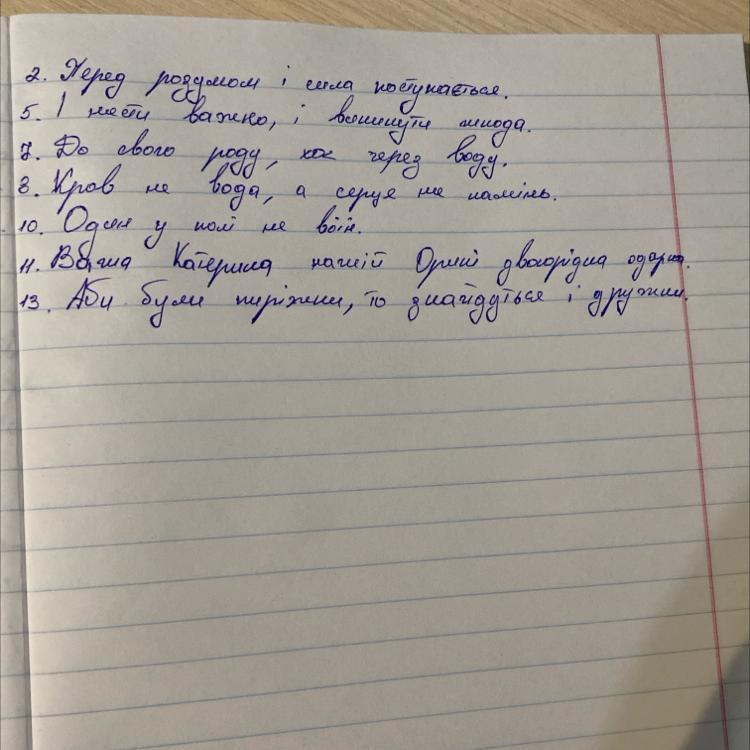 2. Перед розумом і сила поступається.
5. І нести важко, і викинути шкода.
7. До свого роду, хоч через воду.
8. Кров не вода, а серце не камінь.
10. Один у полі не воїн.
11. Ваша Катерина нашій Орині двоюрідна Одарка.
13. Аби були пиріжки, то знайдуться і дружки.